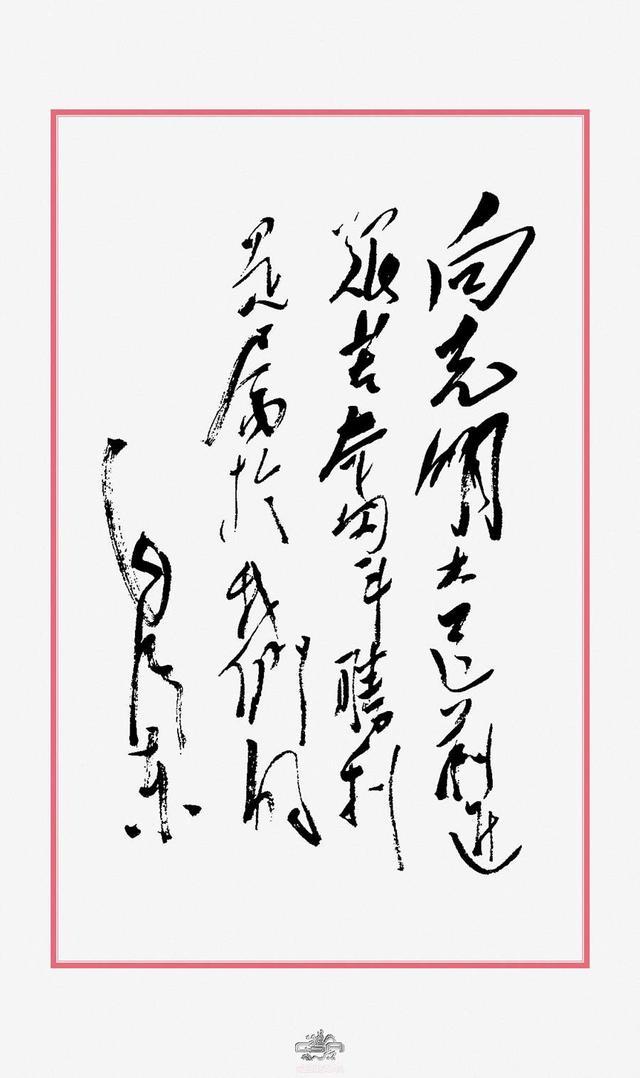 向光明大道前进
艰苦奋斗胜利
是属於我們的
毛泽东